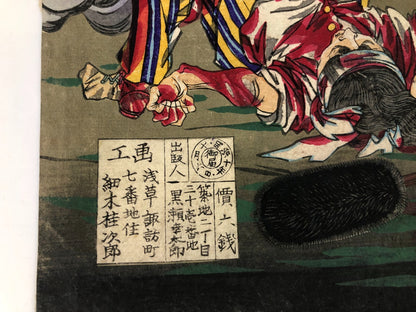 價六錢
御届
築地二丁目
三十壱番地
出版人 黒瀬幸太郎
浅草諏訪町
七番地住
画工 細木桂次郎